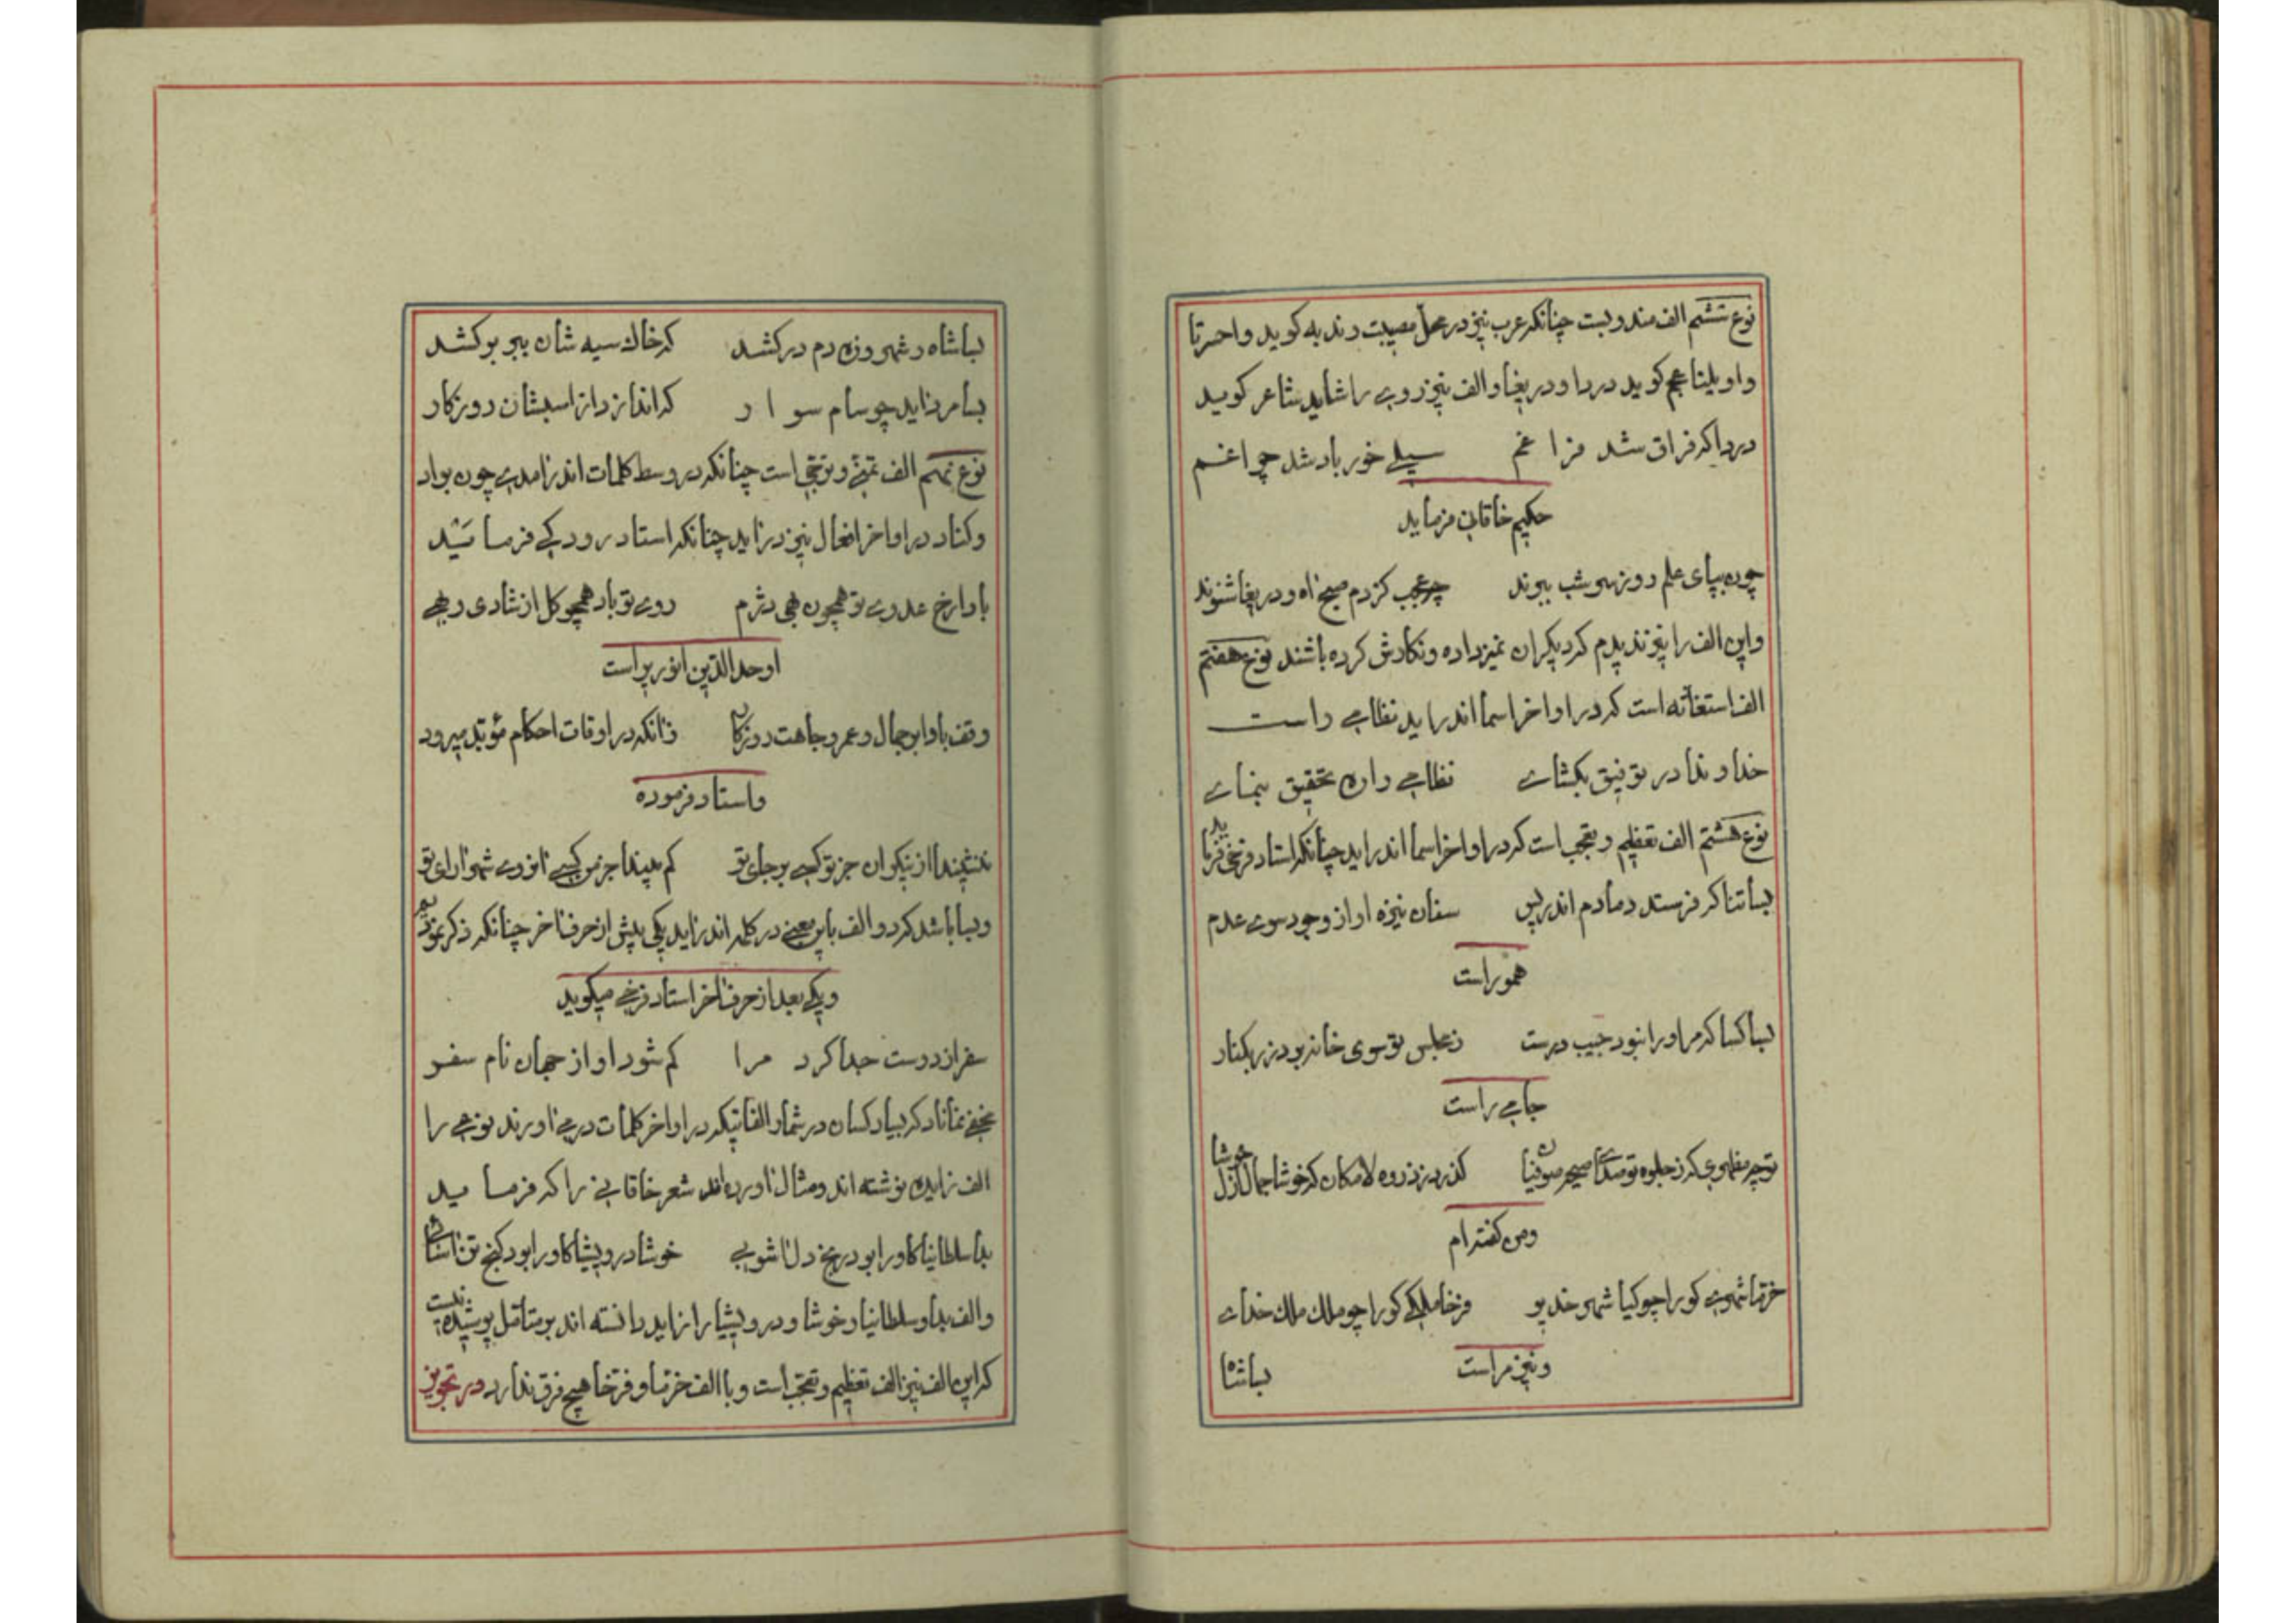 نوع ششم الف مندوبست چنانکه عرب نیز در محل مصیبت و ندبه کوید واحسرتا
واویلتا عجم کوید دردا ودریغا والف نیز زوی را شاید شاعر کوید
دردا که فراق شد مرا غم سیلی خور باد شد چراغم
حکیم خاقانی فرماید
چون بپای علم روز سر شب ببرند چه عجب کز دم صبح اه و دریغا شنوند
واین الف را نیز ندیدم که دیکران تمیز داده ونکارش کرده باشند نوع هفتم
الف استغاثه است که در اواخر اسما اندر اید نظامی راست
خداوندا در توفیق بکشای نظامی را ره تحقیق بنمای
نوع هشتم الف تعظیم و تعجب است که در اواخر اسما اندر اید چنانکه استاد فرخی فرماید
بسا تنا که فرستد دمادم اندر پس سنان نیزه او از وجود سوی عدم
هموراست
بسا کسا که مر او را نبود جیب درست ز مجلس تو سوی خانه برد زر بکنار
جامی راست
تو چه مظهری که ز جلوه تو صدای صیحه صوفیان کذرد ز ذروه لامکان که خوشا جمال ازل خوشا
ومن کفته‌ام
خرما شهری کو را چو کیا شهر خدیو فرخا ملکی کو را چو ملک ملک خدای
ونیز مراست بسا شا
بسا شاه در شهر وزن دم درکشد که خاک سیه شان ببر برکشد
بسا مرد زاید چو سام سوار که اندازد از اسبشان روزکار
نوع نهم الف تمنی و ترجی است چنانکه در وسط کلمات اندر امدی چون بواد
وکناد در اواخر افعال نیز در اید چنانکه استاد رودکی فرماید
بادا رخ عدوی تو همچون بهی دژم روی تو باد همچو کل از شادی و بهی
اوحد الدین انوری راست
وقف بادا بر جمال و عمر و جاهت روزکار زانکه در اوقات احکام مؤبد میرود
واستاد فرموده
ننشیندا از نیکوان جز تو کسی بر جای تو کم بیندا جز من کسی ان روی شهر ارای تو
وبسا باشد که دو الف باین معنی در کلمه اندر اید یکی پیش از حرف اخر چنانکه ذکر نمودیم
ویکی بعد از حرف اخر استاد فرخی میکوید
سفر از دوست جدا کرد مرا کم شود او از جهان نام سفر
مخفی نماناد که بسیار کسان در شمار الفاتیکه در اواخر کلمات در می اورند نوعی را
الف زایده نوشته اند ومثال اورده اند شعر خاقانی را که فرماید
بدا سلطانیا کاو را بود رنج دل اشوبی خوشا درویشیا کاو را بود کنج تن اسائی
والف بدا وسلطانیا وخوشا و درویشیا را زاید دانسته اند بر متامل پوشیده نیست
که این الف نیز الف تعظیم و تعجب است و با الف خرما و فرخا هیچ فرق ندارد در تجویز